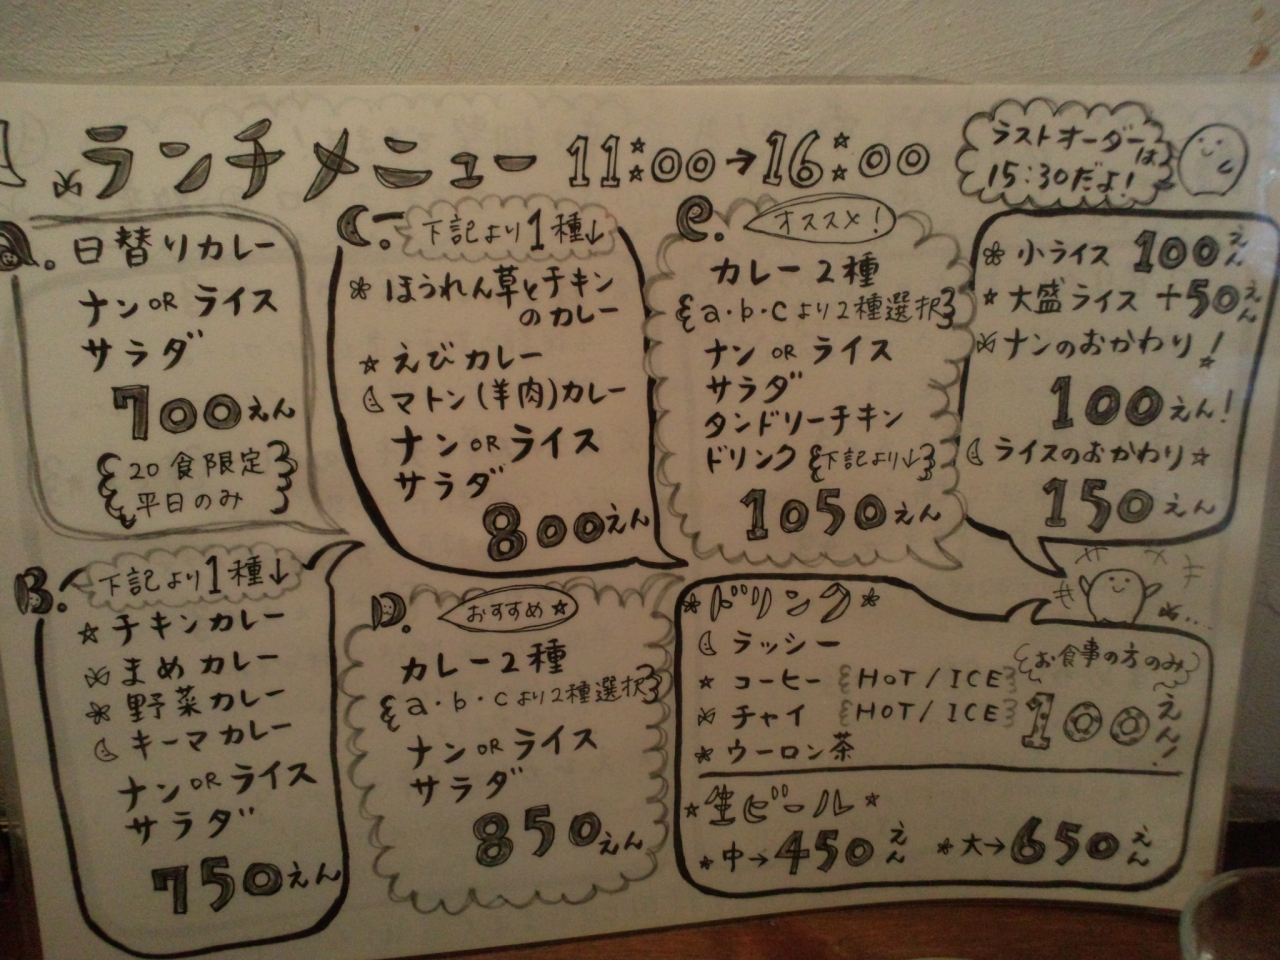 ランチメニュー 11:00→16:00
ラストオーダーは
15:30だよ!
A. 日替りカレー
ナン OR ライス
サラダ
700えん
20食限定
平日のみ
B. 下記より1種↓
チキンカレー
まめカレー
野菜カレー
キーマカレー
ナン OR ライス
サラダ
750えん
C. 下記より1種↓
ほうれん草とチキン
のカレー
えびカレー
マトン(羊肉)カレー
ナン OR ライス
サラダ
800えん
D. おすすめ☆
カレー2種
{a・b・cより2種選択}
ナン OR ライス
サラダ
850えん
e. オススメ!
カレー2種
{a・b・cより2種選択}
ナン OR ライス
サラダ
タンドリーチキン
ドリンク{下記より↓}
1050えん
小ライス 100えん
☆大盛ライス +50えん
ナンのおかわり!
100えん!
ライスのおかわり☆
150えん
ドリンク
ラッシー
☆コーヒー {HOT/ICE}
チャイ {HOT/ICE}
ウーロン茶
お食事の方のみ
100えん!
☆生ビール☆
中→450えん 大→650えん